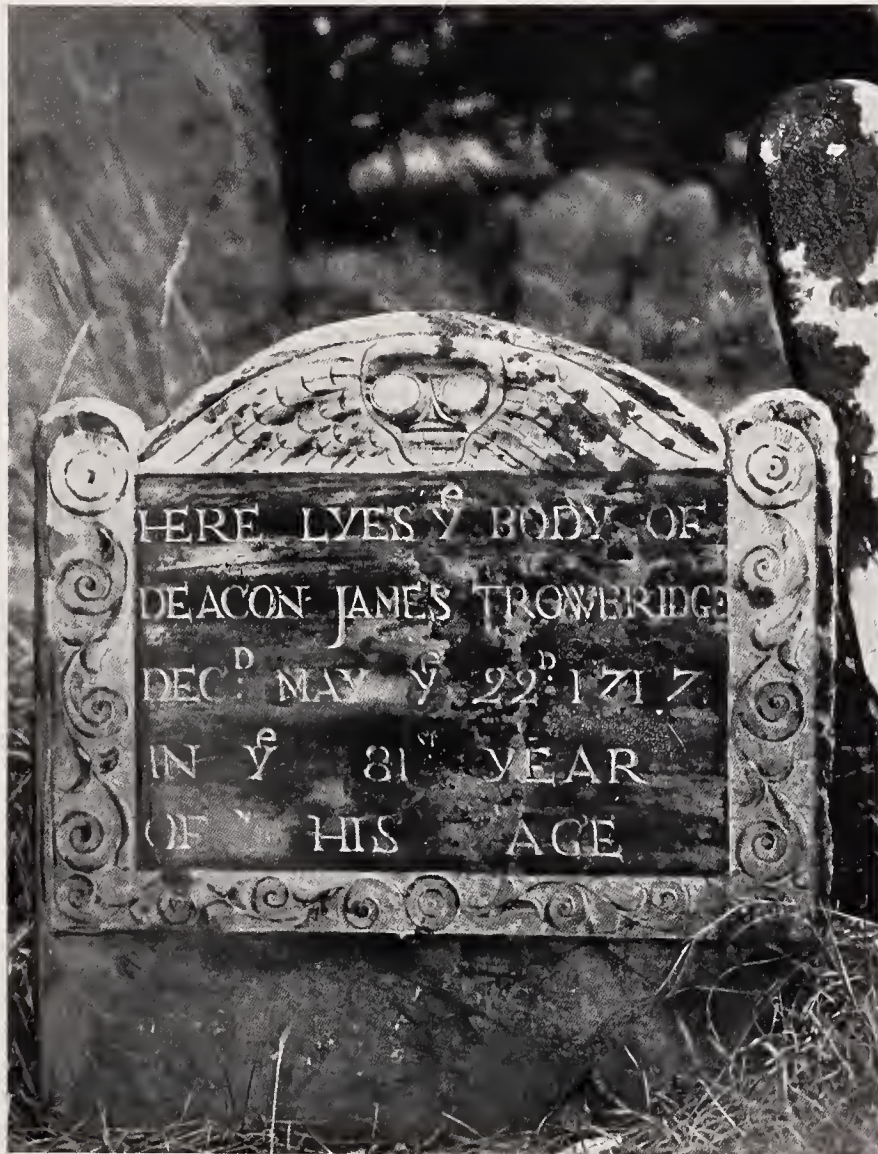 HERE LYES yᵉ BODY OF
DEACON JAMES TROWBRIDGE
DECᴰ. MAY yᵉ 22ᴰ. 1717
IN yᵉ 81ˢᵗ YEAR
OF HIS AGE